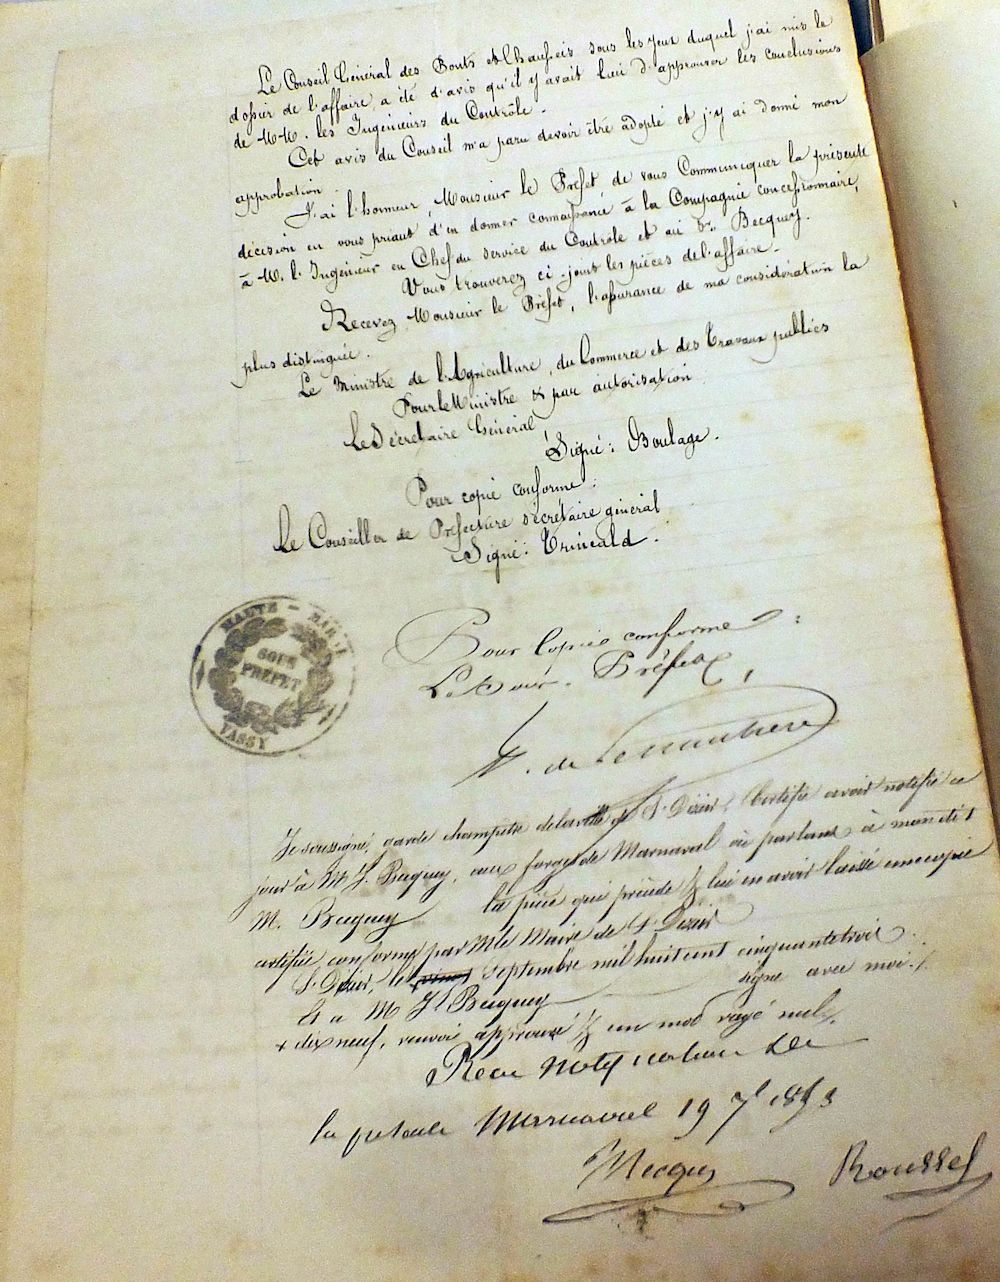 Le Conseil Général des Ponts et Chaussées sous les yeux duquel j'ai mis le
dossier de l'affaire, a été d'avis qu'il y avait lieu d'approuver les conclusions
de MM. les Ingénieurs du Contrôle.
Cet avis du Conseil m'a paru devoir être adopté et j'y ai donné mon
approbation.
J'ai l'honneur, Monsieur le Préfet, de vous Communiquer la présente
décision en vous priant d'en donner connaissance à la Compagnie concessionnaire,
à M. l'Ingénieur en Chef du service du Contrôle et au Sr. Becquey.
Vous trouverez ci-joint les pièces de l'affaire.
Recevez Monsieur le Préfet, l'assurance de ma considération la
plus distinguée.
Le Ministre de l'Agriculture, du Commerce et des Travaux publics
Pour le Ministre & par autorisation
Le Sécretaire Général
Signé: Boulage.
Pour copie conforme:
Le Conseiller de Préfecture sécrétaire général
Signé:
HAUTE - MARNE
SOUS
PRÉFET
VASSY
Pour Copie conforme:
Le Sous-Préfet,
de
Je soussigné, garde champêtre de la ville de St. Dizier, Certifie avoir notifié ce
jour à M. J. Becquey, aux forges de Marnaval où parlant à
M. Becquey la pièce qui précède & lui en avoir laissé une copie
certifiée conforme par M. le Maire de St. Dizier
St. Dizier, le septembre mil huit cent cinquante trois
Et a M. Jh Becquey signé avec moi ./.
+ dix neuf, renvoi approuvé & un mot rayé nul ./.
Reçu notification de
la présente Marnaval 19 7bre 1853
Becquey Roussel